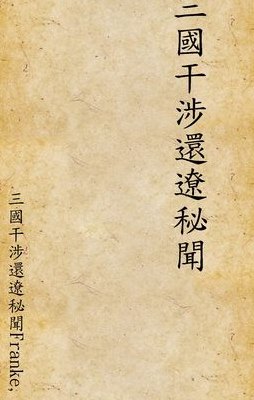 三國干涉還遼秘聞
三國干涉還遼秘聞Franke,